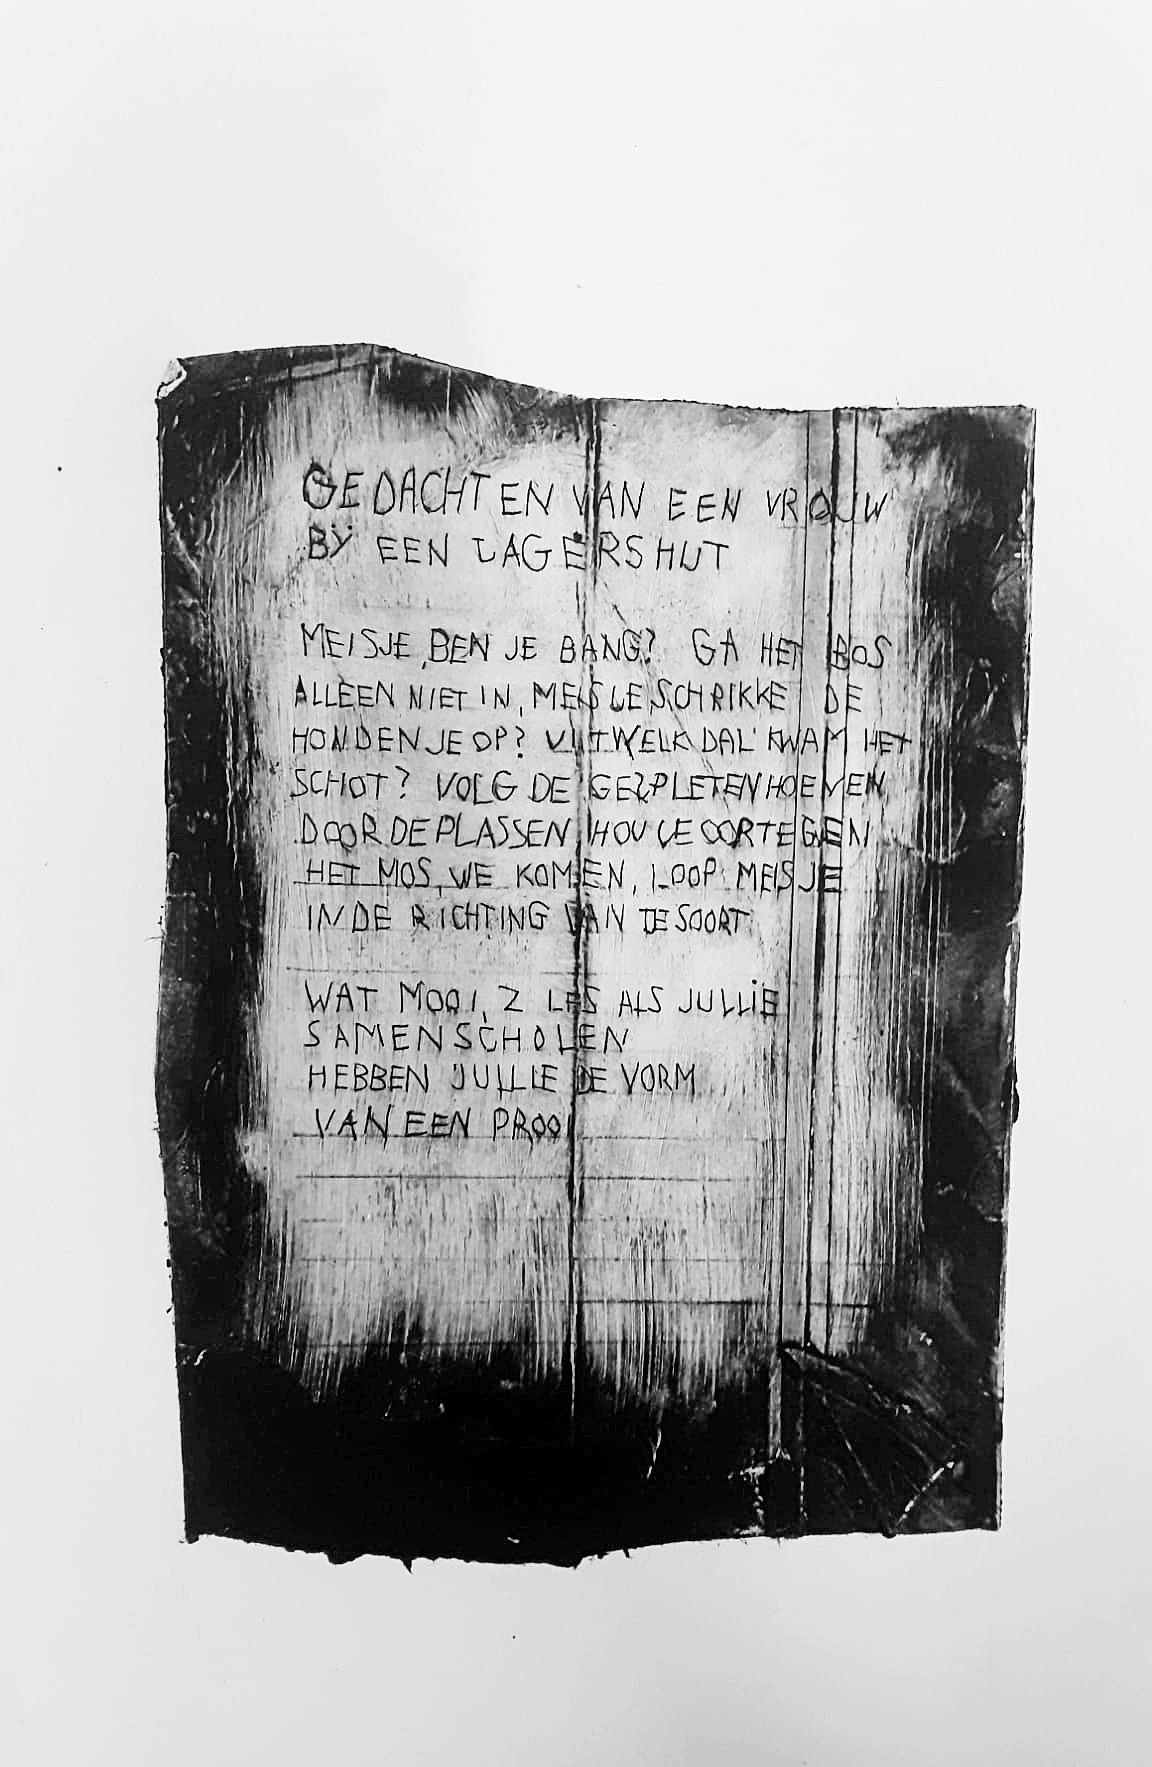 GEDACHTEN VAN EEN VROUW
BIJ EEN JAGERSHUT
MEISJE, BEN JE BANG? GA HET BOS
ALLEEN NIET IN, MEISJE SCHRIKKE DE
HONDEN JE OP? UIT WELK DAL KWAM HET
SCHOT? VOLG DE GESPLETEN HOEVEN
DOOR DE PLASSEN, HOU JE OOR TEGEN
HET MOS, WE KOMEN, LOOP MEISJE
IN DE RICHTING VAN JE SOORT
WAT MOOI, ALS JULLIE
SAMENSCHOLEN
HEBBEN JULLIE DE VORM
VAN EEN PROOI